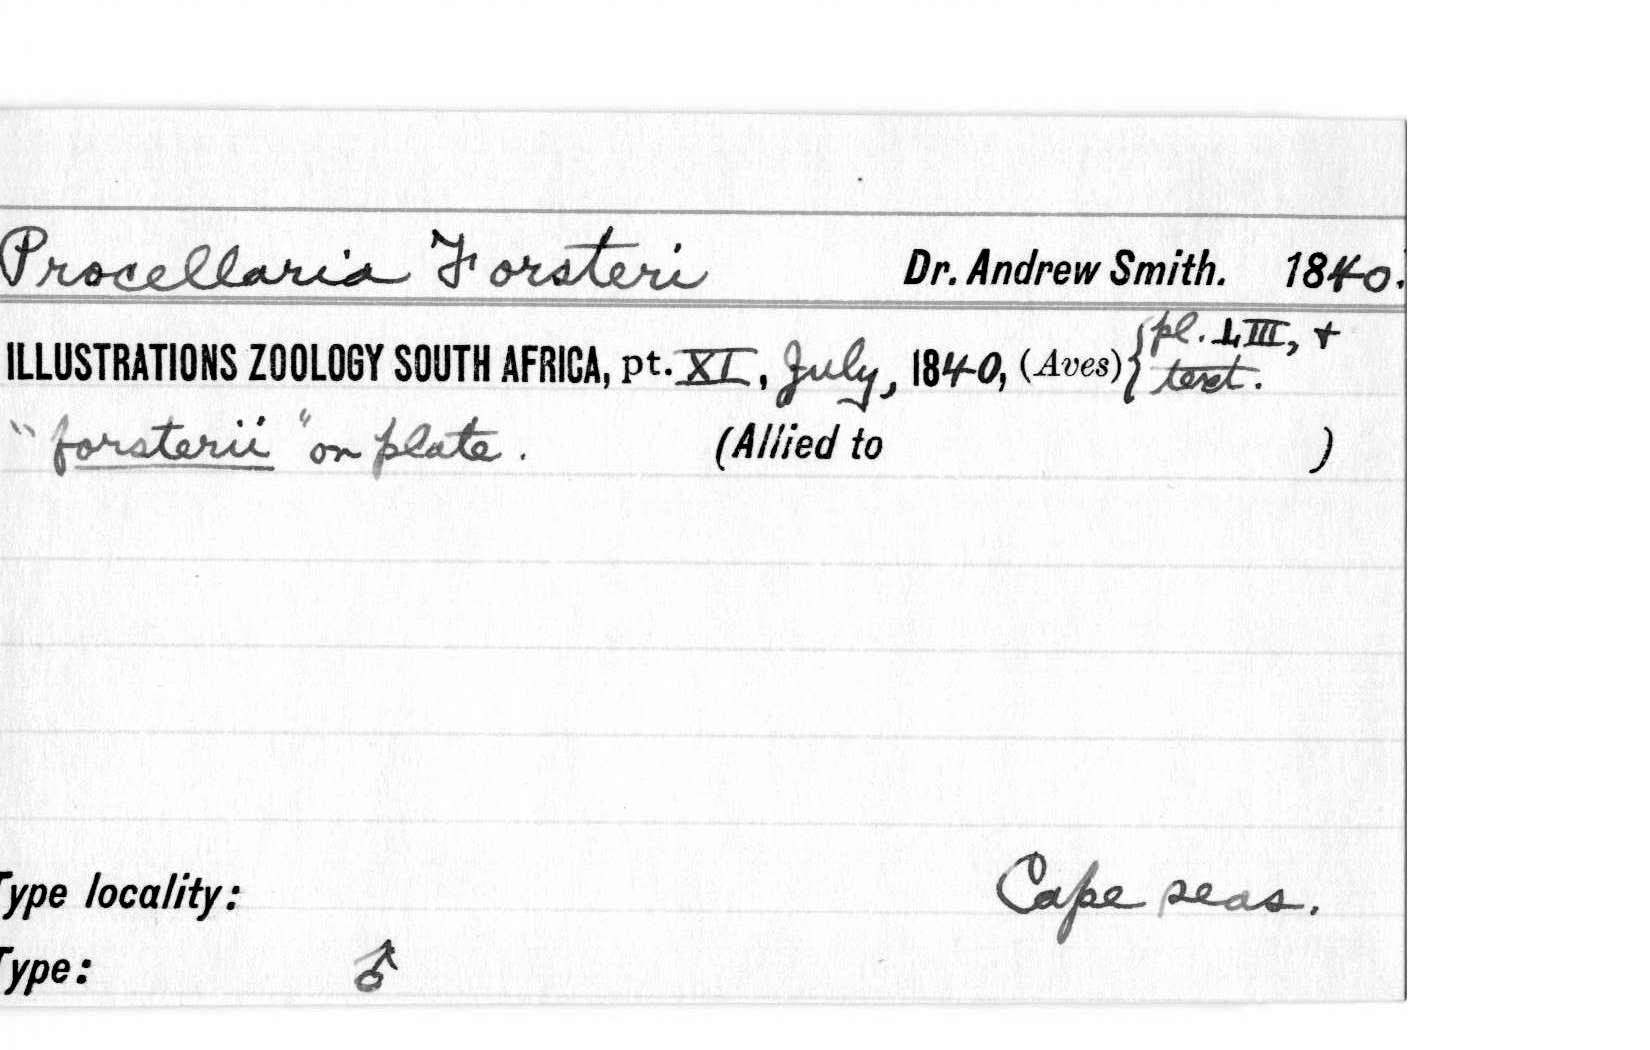 Procellaria Forsteri Dr. Andrew Smith. 1840.
ILLUSTRATIONS ZOOLOGY SOUTH AFRICA, pt. XI, July, 1840, (Aves) { pl. LIII, +
text.
"forsterii" on plate. (Allied to )
Type locality: Cape seas.
Type: ♂